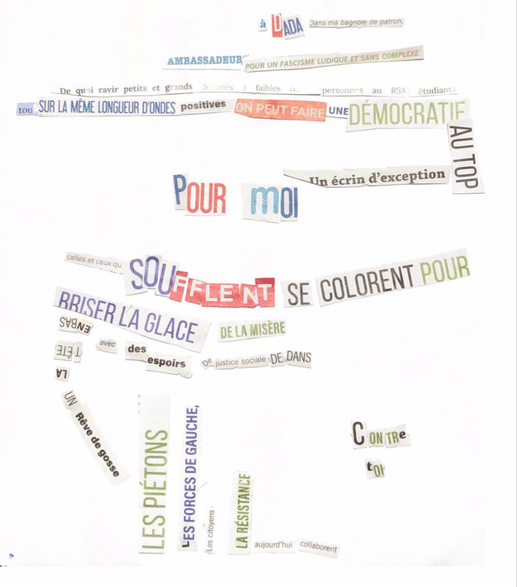 à DADA Dans ma bagnole de patron,
AMBASSADEUR POUR UN FASCISME LUDIQUE ET SANS COMPLEXE
De quoi ravir petits et grands à faibles personnes au RSA étudiants
tou SUR LA MÊME LONGUEUR D'ONDES positives ON PEUT FAIRE UNE DÉMOCRATIE
AU TOP
Un écrin d'exception
POUR moi
celles et ceux qui SOUFFLENT SE COLORENT POUR
BRISER LA GLACE DE LA MISÈRE
EN BAS
TÊTE avec des espoirs De justice sociale DE DANS
LA
UN Rêve de gosse
CONTRe
toi
LES PIÉTONS
LES FORCES DE GAUCHE,
Les citoyens
LA RÉSISTANCE
aujourd'hui collaborent